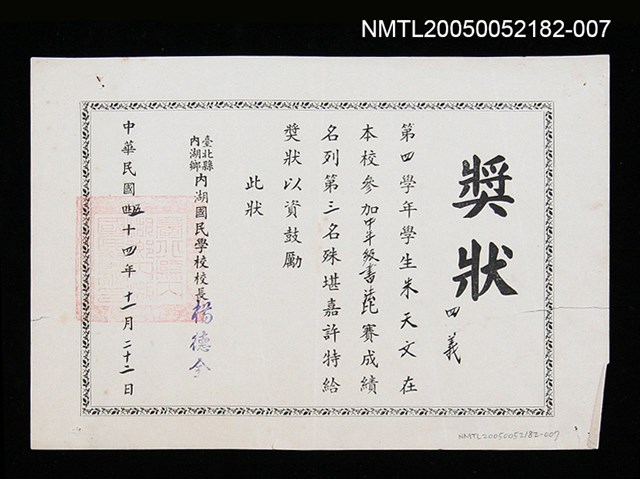 NMTL20050052182-007
獎狀
四義
第四學年學生朱天文在
本校參加中年級書法比賽成績
名列第三名殊堪嘉許特給
獎狀以資鼓勵
此狀
臺北縣
內湖鄉
內湖國民學校校長楊德全
中華民國五十四年十一月二十二日
NMTL20050052182-007